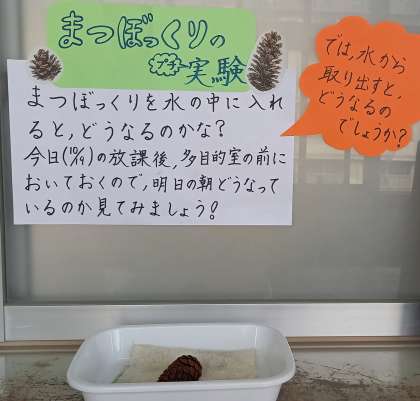 まつぼっくりの
プチ実験
まつぼっくりを水の中に入れ
ると,どうなるのかな?
今日(10/19)の放課後,多目的室の前に
おいておくので,明日の朝どうなって
いるのか見てみましょう!
では,水から
取り出すと,
どうなるの
でしょうか?